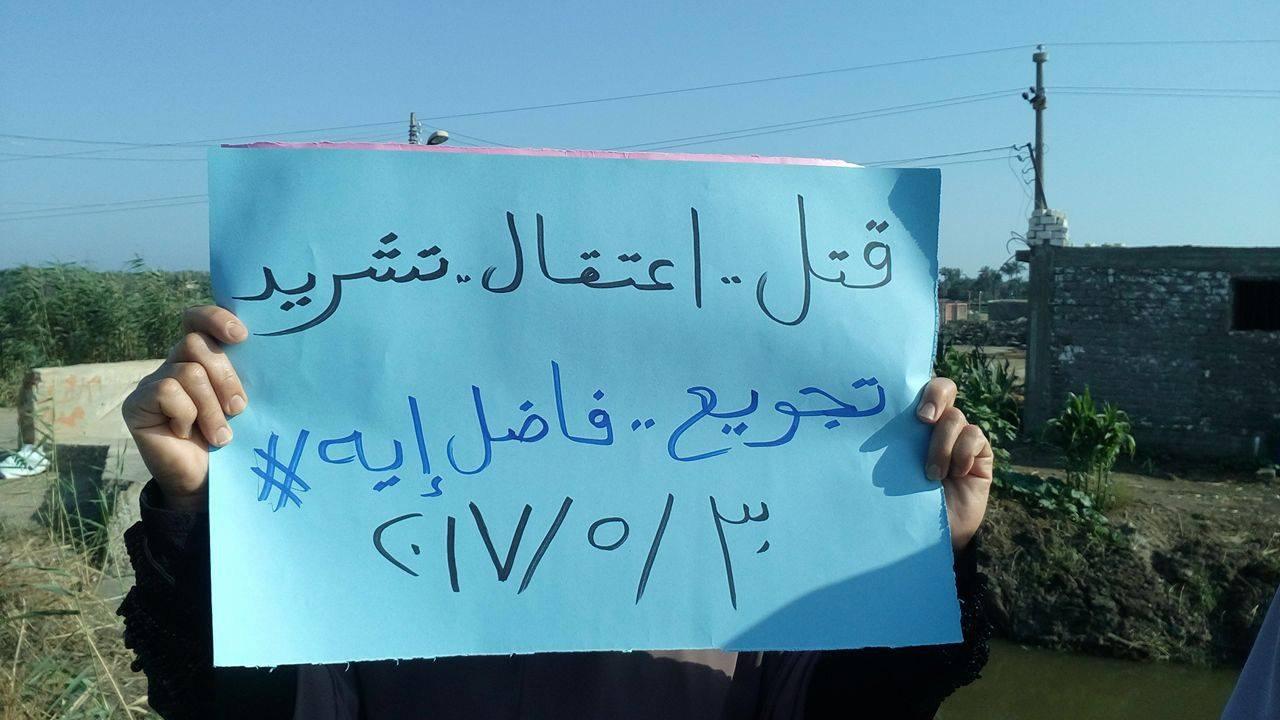 قتل .. اعتقال .. تشريد
تجويع .. فاضل إيه#
٣٠/٥/٢٠١٧